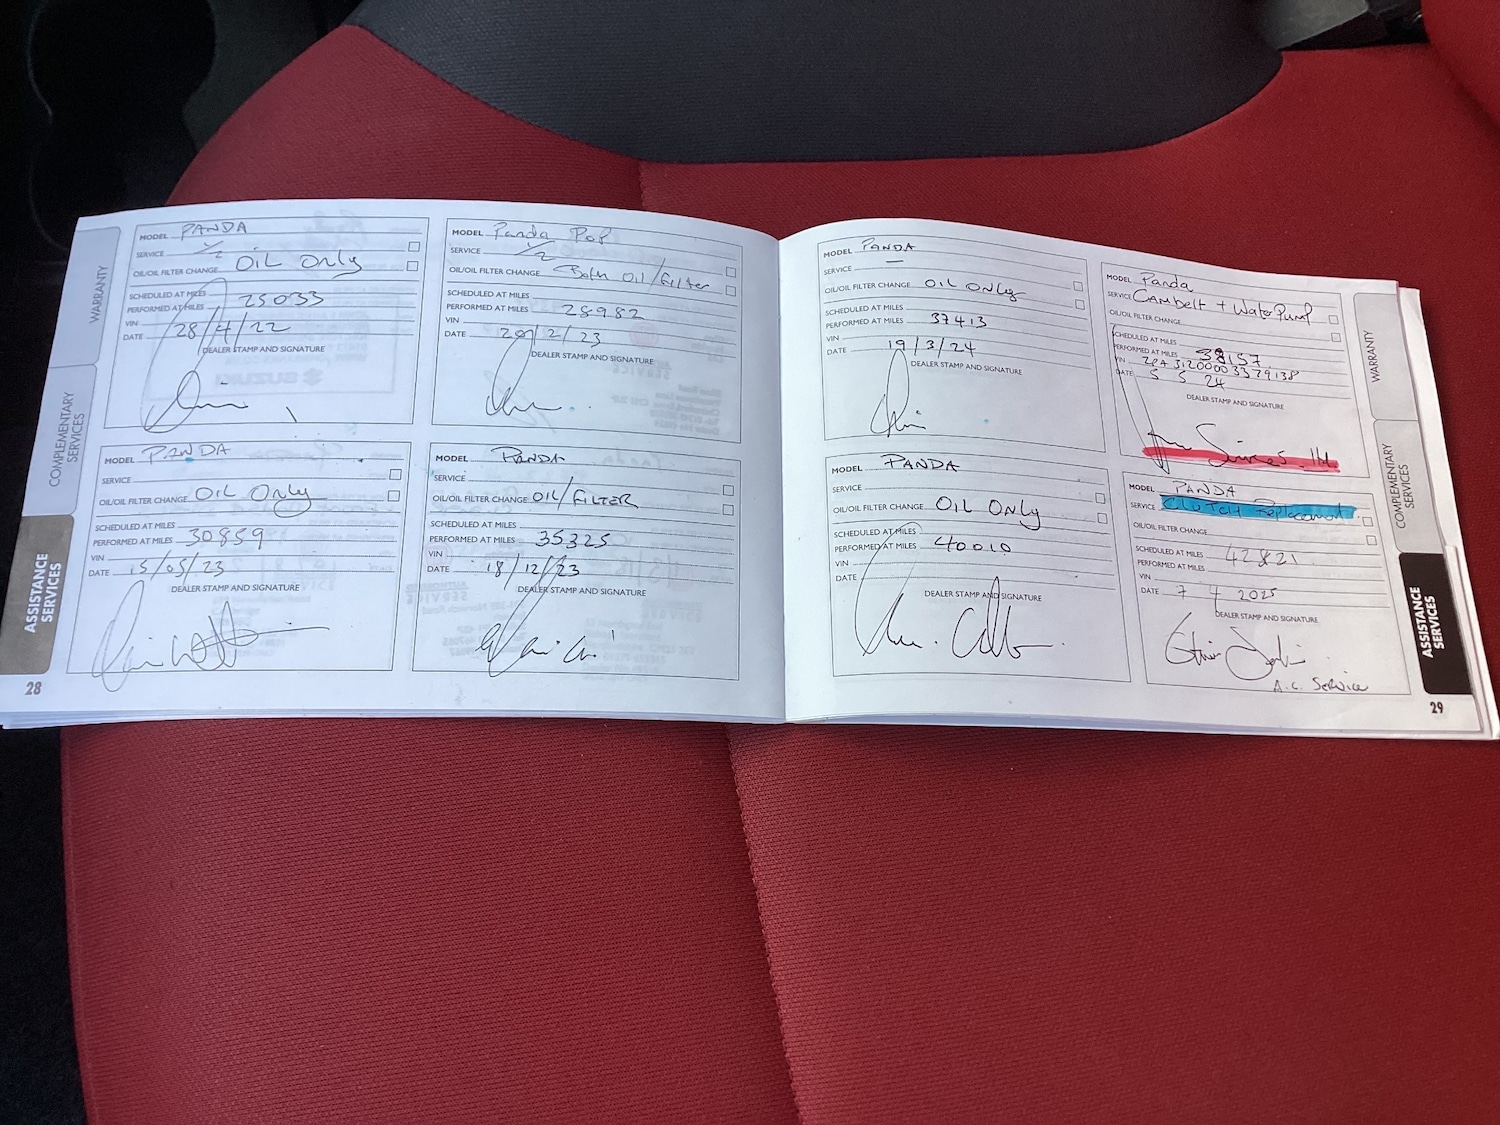 WARRANTY
COMPLEMENTARY SERVICES
ASSISTANCE SERVICES
MODEL PANDA
SERVICE 1/2
OIL/OIL FILTER CHANGE OIL ONLY
SCHEDULED AT MILES
PERFORMED AT MILES 25033
VIN
DATE 28/4/22
DEALER STAMP AND SIGNATURE
MODEL Panda POP
SERVICE 1/2
OIL/OIL FILTER CHANGE Both Oil/Filter
SCHEDULED AT MILES
PERFORMED AT MILES 28982
VIN
DATE 20/2/23
DEALER STAMP AND SIGNATURE
MODEL PANDA
SERVICE
OIL/OIL FILTER CHANGE OIL ONLY
SCHEDULED AT MILES
PERFORMED AT MILES 30859
VIN
DATE 15/05/23
DEALER STAMP AND SIGNATURE
MODEL PANDA
SERVICE
OIL/OIL FILTER CHANGE OIL/FILTER
SCHEDULED AT MILES
PERFORMED AT MILES 35325
VIN
DATE 18/12/23
DEALER STAMP AND SIGNATURE
28
MODEL PANDA
SERVICE —
OIL/OIL FILTER CHANGE OIL ONLY
SCHEDULED AT MILES
PERFORMED AT MILES 37413
VIN
DATE 19/3/24
DEALER STAMP AND SIGNATURE
MODEL Panda
SERVICE Cambelt + Water Pump
OIL/OIL FILTER CHANGE
SCHEDULED AT MILES
PERFORMED AT MILES 38157
VIN
DATE 5 5 24
DEALER STAMP AND SIGNATURE
MODEL PANDA
SERVICE
OIL/OIL FILTER CHANGE OIL ONLY
SCHEDULED AT MILES
PERFORMED AT MILES 40010
VIN
DATE
DEALER STAMP AND SIGNATURE
MODEL PANDA
SERVICE Clutch Replacement
OIL/OIL FILTER CHANGE
SCHEDULED AT MILES 42821
PERFORMED AT MILES
VIN
DATE 7 4 2025
DEALER STAMP AND SIGNATURE
A.C. Service
29
WARRANTY
COMPLEMENTARY SERVICES
ASSISTANCE SERVICES